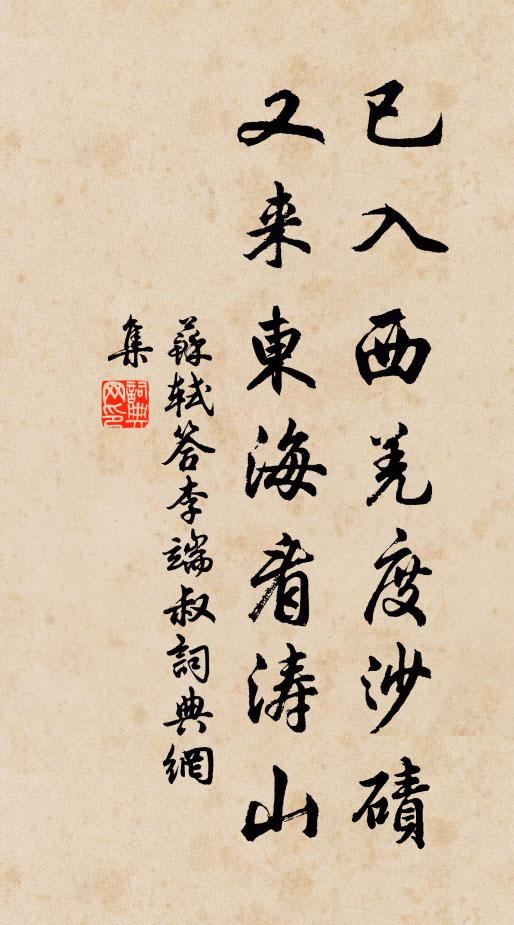 已入西羌度沙磧
又来東海看涛山
蘇軾答李端叔詞典網
集
詞典网印